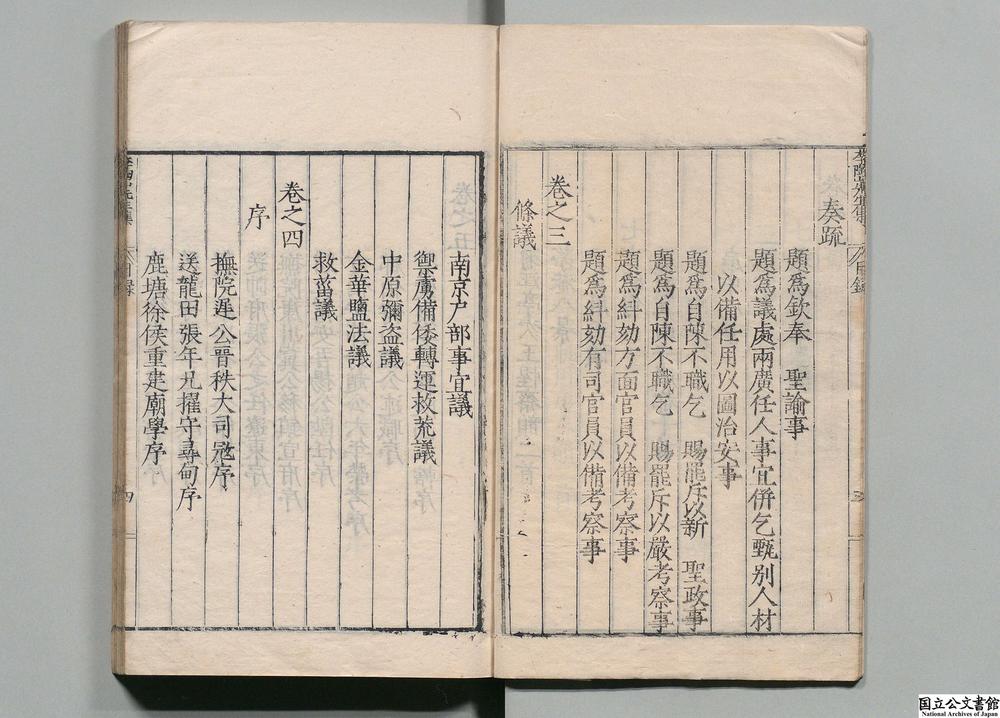 奏疏
題爲欽奉　聖諭事
題爲議處兩廣任人事宜併乞甄別人材
以備任用以圖治安事
題爲自陳不職乞　賜罷斥以新　聖政事
題爲自陳不職乞　賜罷斥以嚴考察事
題爲糾劾方面官員以備考察事
題爲糾劾有司官員以備考察事
卷之三
條議
南京户部事宜議
禦虜備倭轉運救荒議
中原彌盗議
金華鹽法議
救菑議
卷之四
序
撫院遲公晉秩大司寇序
送龍田張年兄擢守尋甸序
鹿塘徐侯重建廟學序
国立公文書館
National Archives of Japan